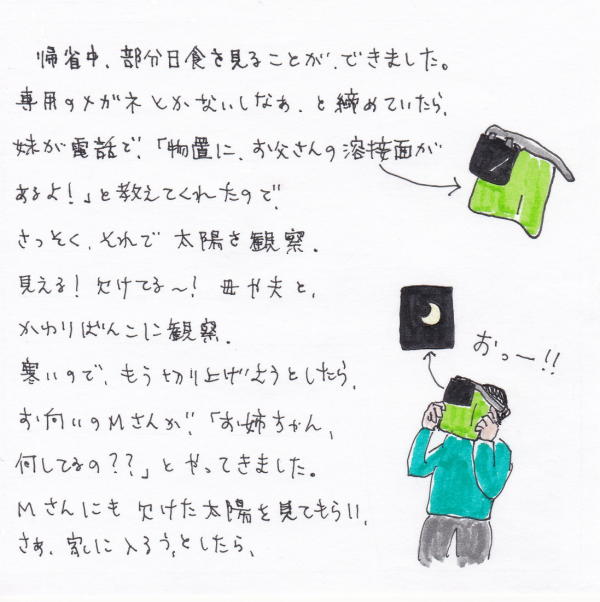 帰省中、部分日食を見ることが、できました。
専用のメガネとかないしなぁ、と締めていたら、
妹が電話で、「物置に、お父さんの溶接面が
あるよ！」と教えてくれたので、
さっそく、それで 太陽を観察。
見える！欠けてる〜！ 母や夫と、
かわりばんこに観察。
寒いので、もう切り上げようとしたら、
お向いのMさんが、「お姉ちゃん、
何してるの？？」とやってきました。
Mさんにも 欠けた太陽を見てもらい、
さあ、家に入ろう、としたら、
おっー!!